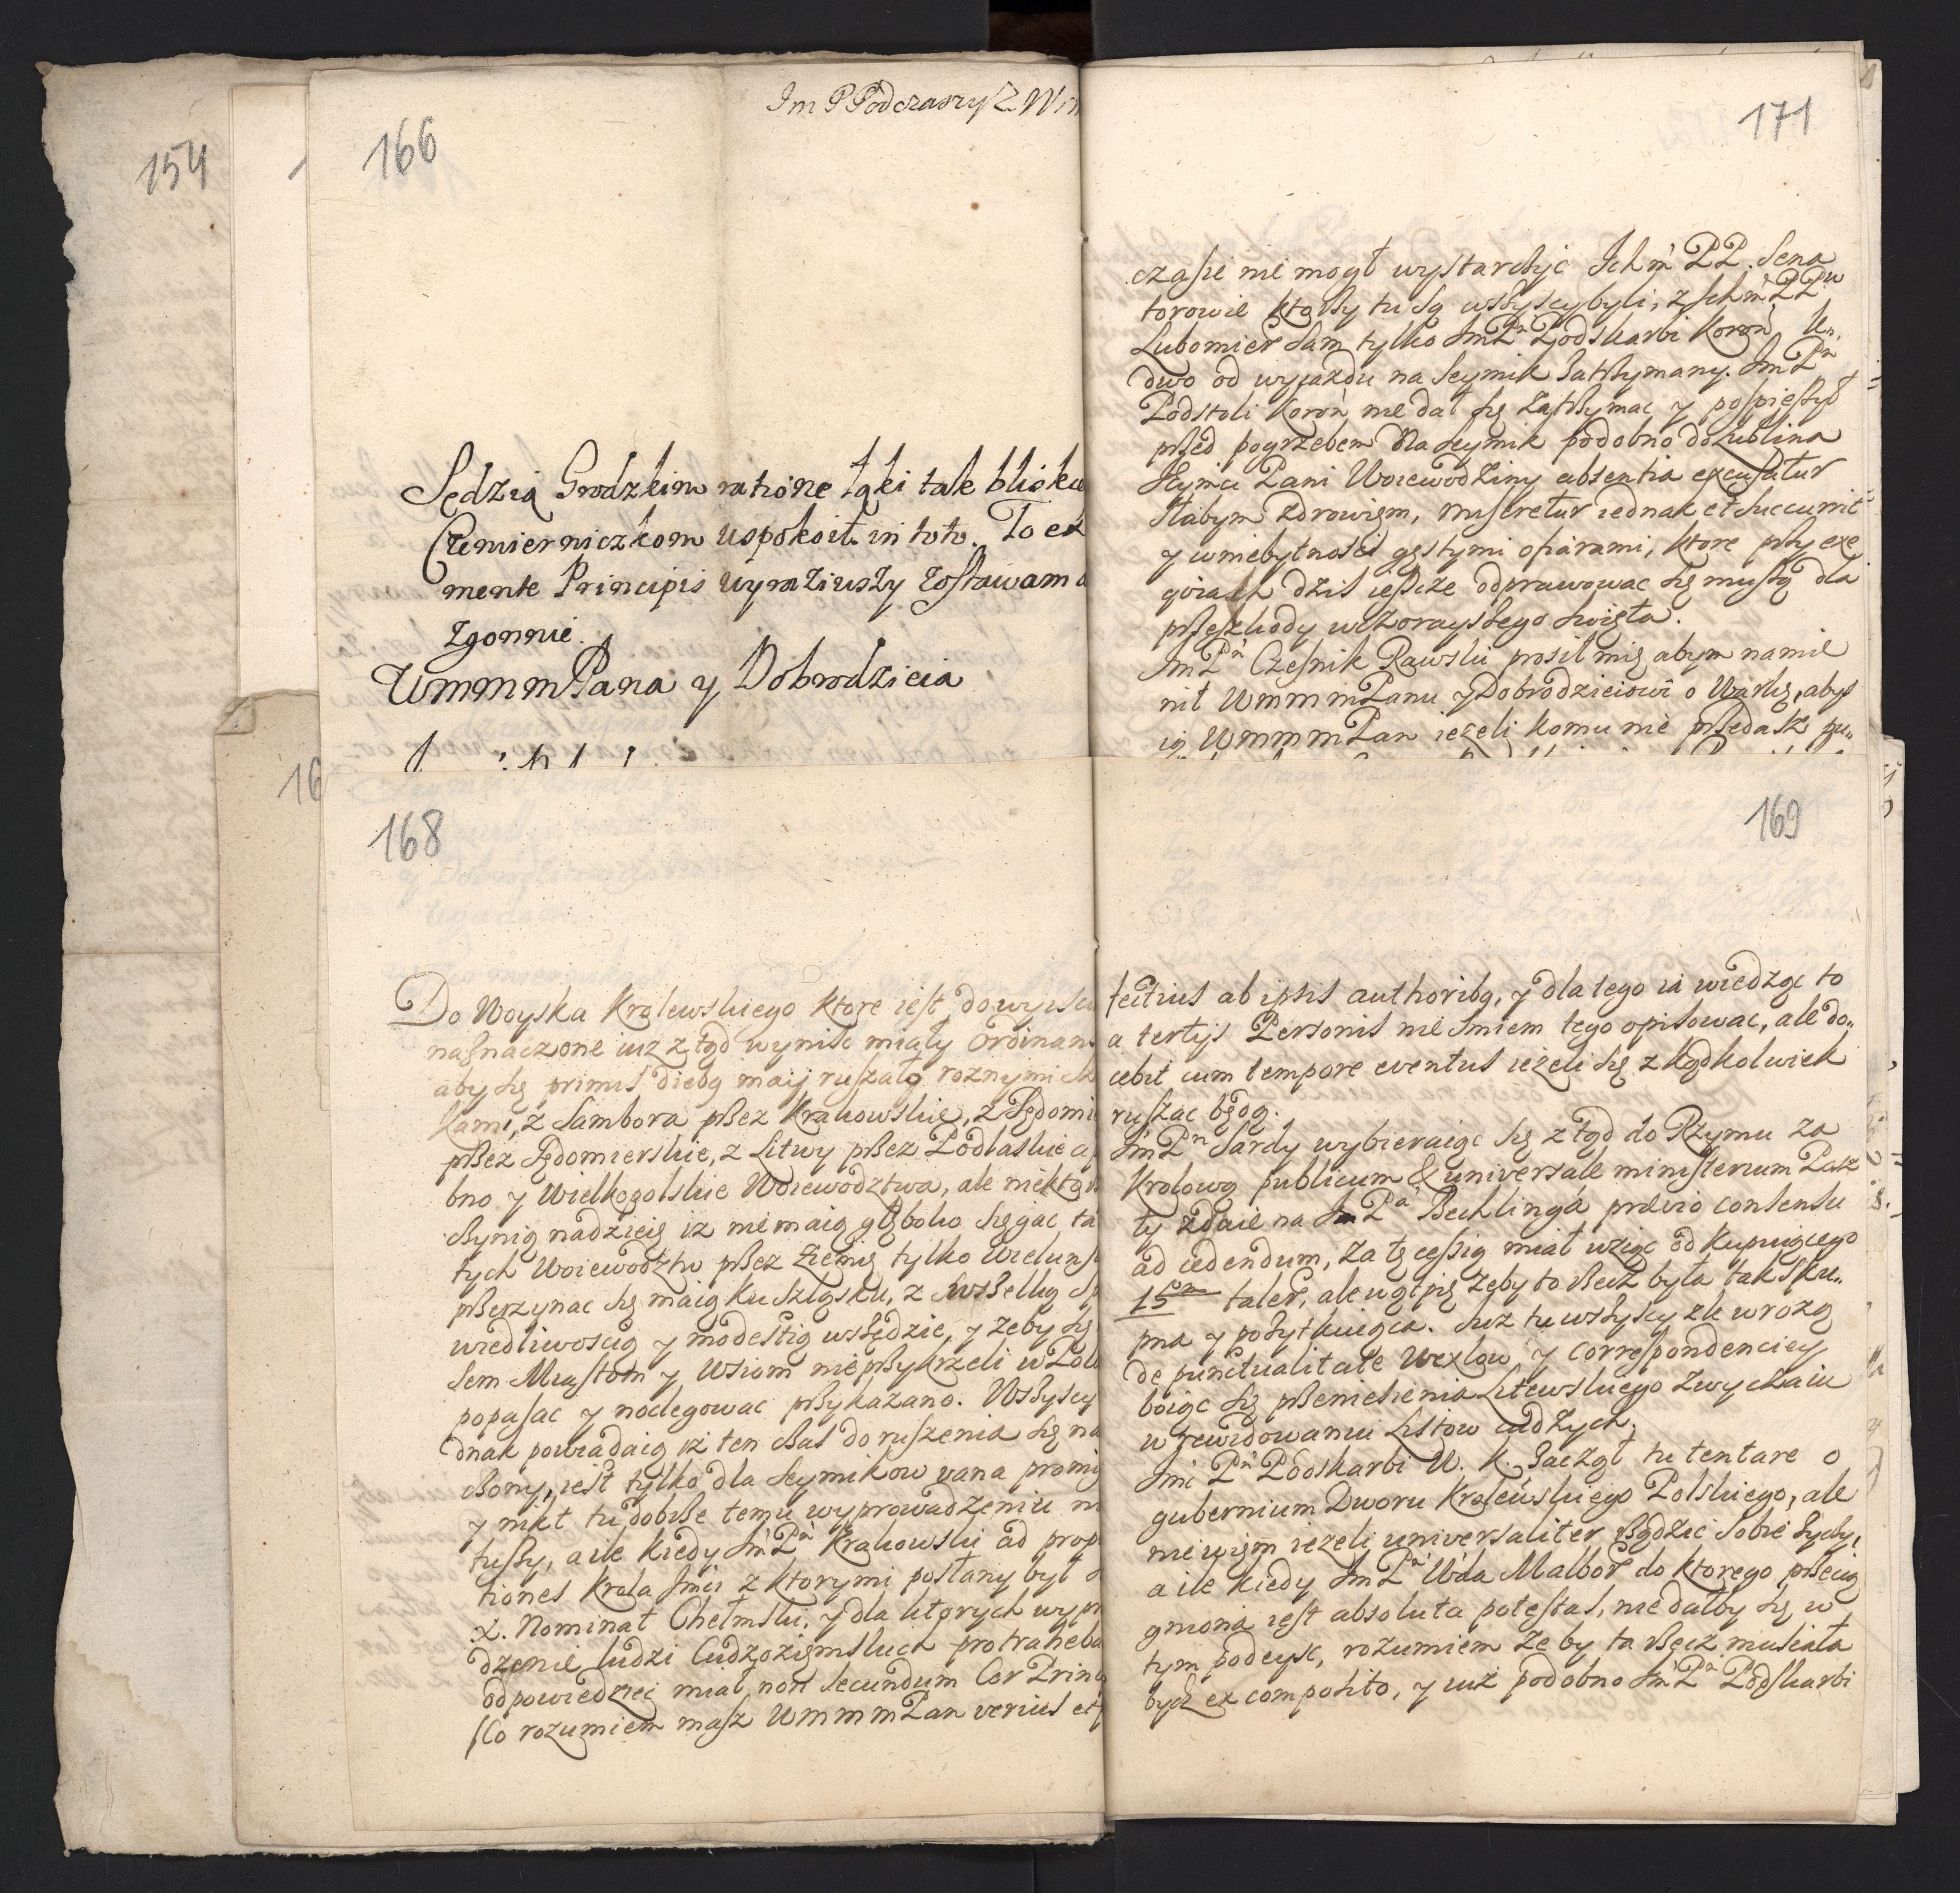 154
166
Im P Podczaszy Z
Sędzią Grodzkim ratione łąki tak
Czemierniczkom uspokoił in toto. To ex
mente Principis wyraziwszy zostawam
zgonnie
Wmmm Pana y Dobrodzieia
171
czasie nie mogł wystarczyć Ichm PP. Sena
torowie ktorzy tu są wszyscy byli, z Ichm PP
Lubomier sam tylko Im Pn Podskarbi Koron,
dwo od wyiazdu na Seymik zatrzymany. Im Pn
Podstoli Koron nie dał się zatrzymac y pospieszył
przed pogrzebem na seymik podobno do Lublina
Jeymci Pani Woiewodziny absentia excusatur
słabym zdrowiem, miseretur iednak et succurrit
y w niebytnosci gęstymi ofiarami, ktore przy exe
quiach dzis ieszcze odprawowac się muszą dla
przeszkody wczorayszego swięta.
Im Pn Czesnik Rawski prosił mię abym namie
nił Wmmm Panu y Dobrodzieiowi o Warkę, abys
ią Wmmm Pan ieżeli komu nie przedasz
16
168
Do Woyska Krolewskiego ktore iest do
naznaczone iuz ztąd wynisc miały
aby się primis diebq maij ruszało roznymi
kami, z Sambora przez Krakowskie, z Sędomi
przez Sędomierskie, z Litwy przez Podlaskie
bno y Wielkopolskie Woiewodztwa, ale niektorzy
czynią nadzieię iz nie maią głęboko sięgac
tych Woiewodztw przez Ziemię tylko Wieluns
przerzynac się maią ku Szląsku, z wszelką
wiedliwoscią y modestią wszędzie, y zeby się
sem Miastom y Wsiom nie przykrzeli w
popasac y noclegowac przykazano. Wszyscy
dnak powiadaią iz ten czas do ruszenia się
czony, iest tylko dla Seymikow vana
y nikt tu dobrze temu wyprowadzeniu
tuszy, a ile kiedy Im Pn Krakowski ad prop
tiones Krola Imci z ktorymi posłany był
X. Nominat Chełmski, y dla ktorych
dzenie ludzi Cudzoziemskich
odpowiedziec miał non secundum Cor Princ
(Co rozumiem masz Wmmm Pan verius et
169
tectius ab ipsis authoribq, y dla tego ia wiedząc to
a tertijs Personis nie smiem tego opisowac, ale do„
cebit cum tempore eventus ieżeli się z kądkolwiek
ruszac będą.
Im Pn Sardy wybieraiąc się ztąd do Rzymu za
Krolową publicum & universale ministerium
ty zdaie na Im Pa Bechlinga prævio consensu
ad cedendum, za tę cessią miał wziąc od kupuiącego
15 taler, ale wątpię żeby to rzecz była tak sku„
pna y pożytkuiąca. Iuz tu wszyscy zle wrozą
de punctualitate Wexlow y correspondenciey
boiąc się przeniesienia Litewskiego zwyczaiu
w rewidowaniu Listow cudzych.
Imc Pn Podskarbi W. K. Zaczął tu tentare o
gubernium Dworu Krolewskiego Polskiego, ale
nie wiem ieżeli universaliter rządzić sobie życzy,
a ile kiedy Im Pn Wda Malbor do ktorego
iest absoluta potestas, nie dałby się w
tym podeysc, rozumiem że by ta rzecz musiała
bydz ex composito, y iuż podobno Im Pn Podskarbi